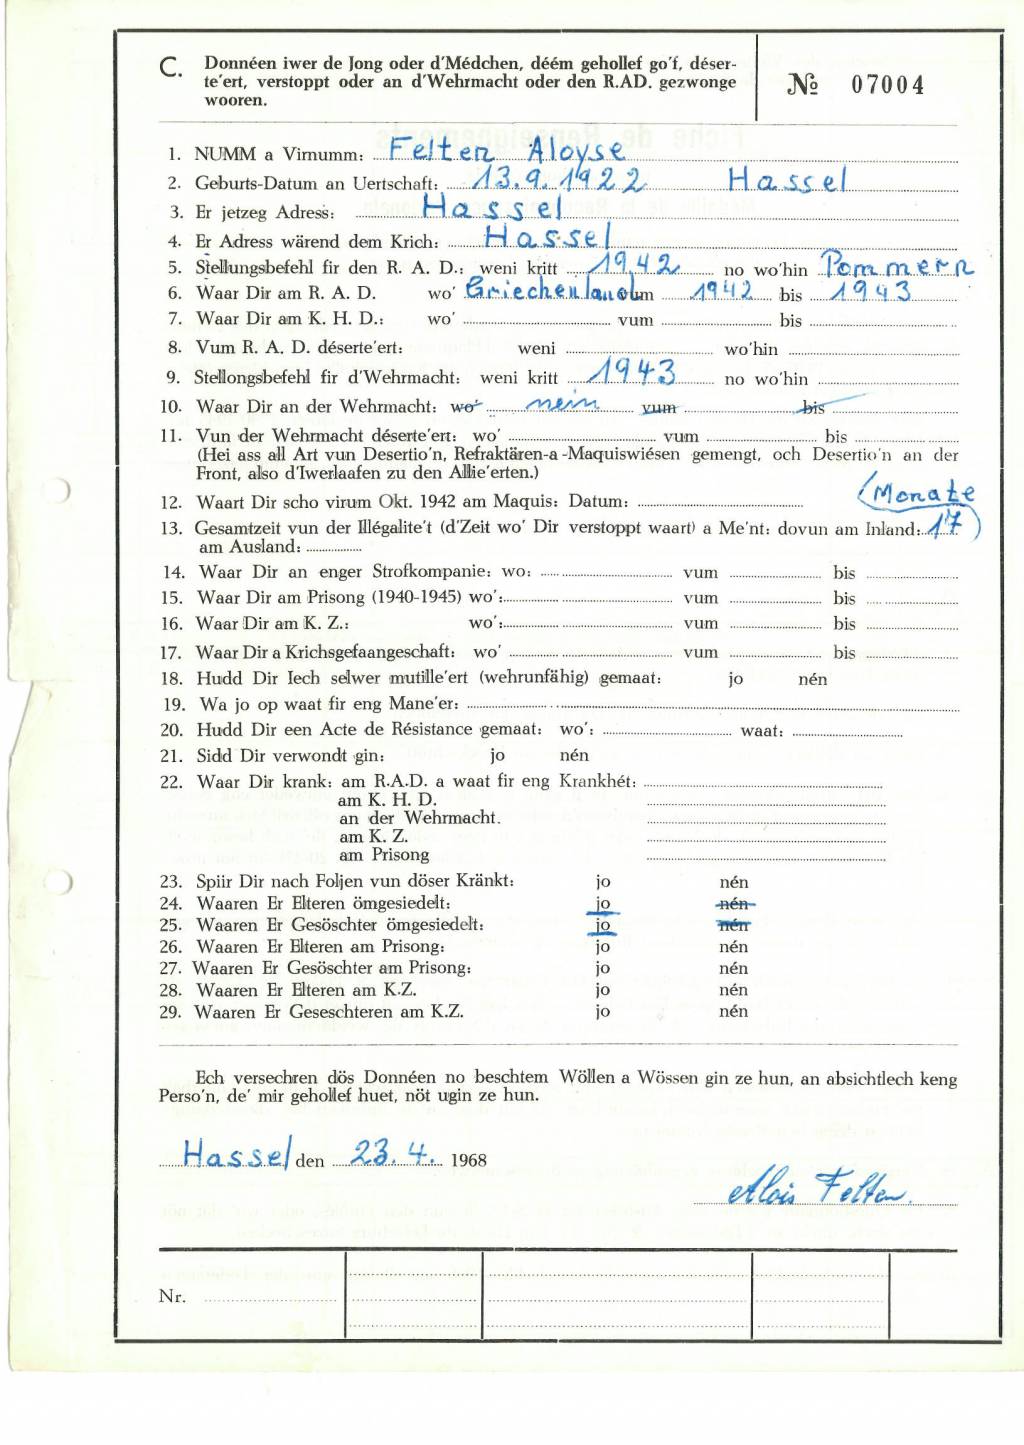 C. Donnéen iwer de Jong oder d'Médchen, déém gehollef go'f, déser-
te'ert, verstoppt oder an d'Wehrmacht oder den R.AD. gezwonge
wooren.
№ 07004
1. NUMM a Virnumm: Felten Aloyse
2. Geburts-Datum an Uertschaft: 13.9.1922 Hassel
3. Er jetzeg Adress: Hassel
4. Er Adress wärend dem Krich: Hassel
5. Stellungsbefehl fir den R. A. D.: weni kritt 1942 no wo'hin Pommern
6. Waar Dir am R. A. D. wo' Griechenland vum 1942 bis 1943
7. Waar Dir am K. H. D.: wo' vum bis
8. Vum R. A. D. déserte'ert: weni wo'hin
9. Stellongsbefehl fir d'Wehrmacht: weni kritt 1943 no wo'hin
10. Waar Dir an der Wehrmacht: wo' nein vum bis
11. Vun der Wehrmacht déserte'ert: wo' vum bis
(Hei ass all Art vun Desertio'n, Refraktären-a-Maquiswiésen gemengt, och Desertio'n an der
Front, also d'Iwerlaafen zu den Allie'erten.)
12. Waart Dir scho virum Okt. 1942 am Maquis: Datum:
(Monate
13. Gesamtzeit vun der Illégalite't (d'Zeit wo' Dir verstoppt waart) a Me'nt: dovun am Inland: 17)
am Ausland:
14. Waar Dir an enger Strofkompanie: wo: vum bis
15. Waar Dir am Prisong (1940-1945) wo': vum bis
16. Waar Dir am K. Z.: wo': vum bis
17. Waar Dir a Krichsgefaangeschaft: wo' vum bis
18. Hudd Dir Iech selwer mutille'ert (wehrunfähig) gemaat: jo nén
19. Wa jo op waat fir eng Mane'er:
20. Hudd Dir een Acte de Résistance gemaat: wo': waat:
21. Sidd Dir verwondt gin: jo nén
22. Waar Dir krank: am R.A.D. a waat fir eng Krankhét:
am K. H. D.
an der Wehrmacht.
am K. Z.
am Prisong
23. Spiir Dir nach Foljen vun döser Kränkt: jo nén
24. Waaren Er Elteren ömgesiedelt: jo nén
25. Waaren Er Gesöschter ömgesiedelt: jo nén
26. Waaren Er Elteren am Prisong: jo nén
27. Waaren Er Gesöschter am Prisong: jo nén
28. Waaren Er Elteren am K.Z. jo nén
29. Waaren Er Geseschteren am K.Z. jo nén
Ech versechren dös Donnéen no beschtem Wöllen a Wössen gin ze hun, an absichtlech keng
Perso'n, de' mir gehollef huet, nöt ugin ze hun.
Hassel den 23.4. 1968
Alois Felten.
Nr.